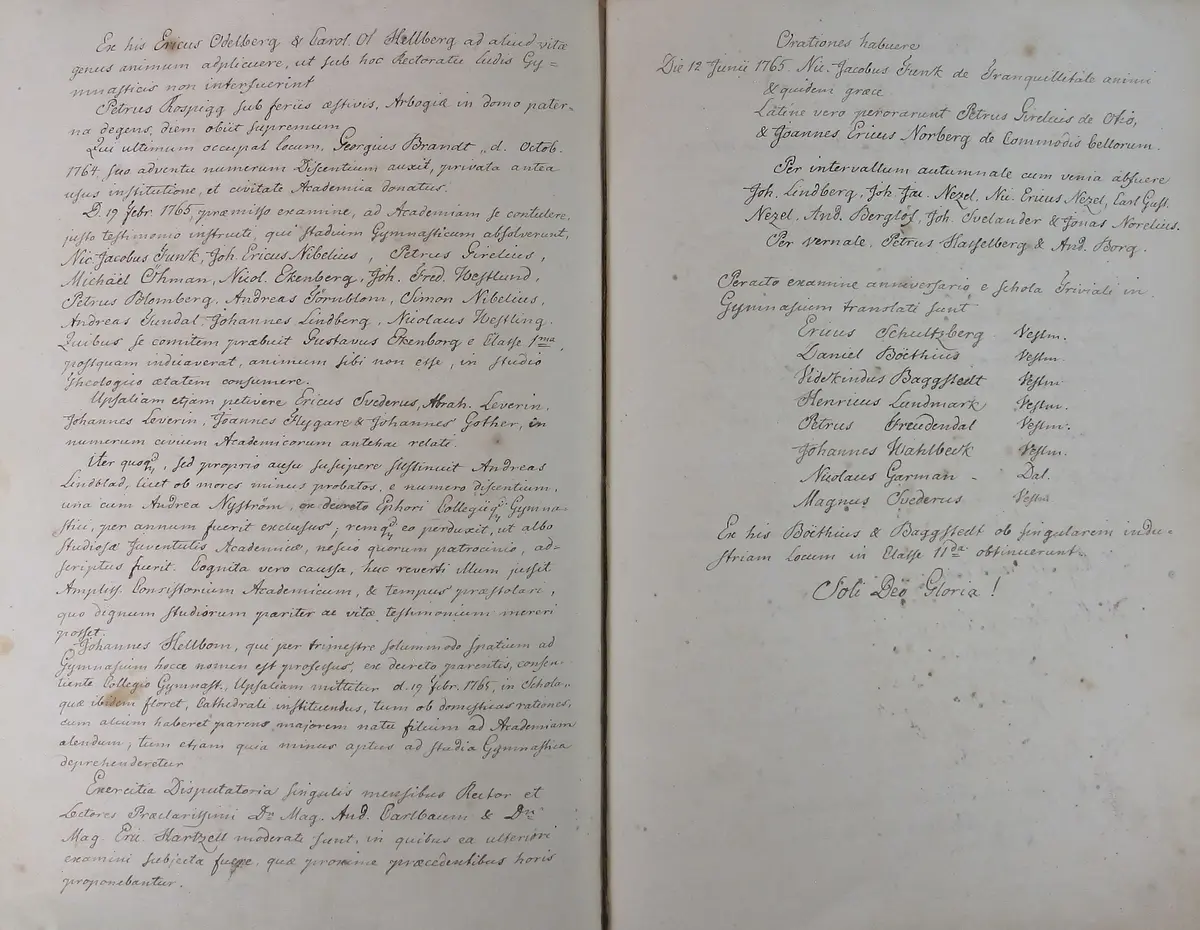 Ex his Ericus Odelberg & Carol. Ol Hellberg ad aliud vitæ
genus animum adplicuere, ut sub hoc Rectoratu ludis Gy=
mnasticis non interfuerint
Petrus Rospigg sub feriis æstivis, Arbogiæ in domo pater-
na degens, diem obiit supremum
Qui ultimum occupat locum. Georgius Brandt „d. Octob.
1764. suo adventu numerum Discentium auxit, privata antea
usus institutione, et civitate Academica donatus.
D. 19 Febr. 1765, præmisso examine, ad Academiam se contulere,
justo testimonio instructi, qui stadium Gymnasticum absolverunt,
Nic. Jacobus Funk, Joh. Ericus Nibelius, Petrus Girelius,
Michaël Öhman, Nicol. Ekenberg, Joh. Fred. Westlund,
Petrus Blomberg, Andreas Törnblom, Simon Nibelius,
Andreas Sundal, Johannes Lindberg, Nicolaus Westling.
Quibus se comitem præbuit Gustavus Ekenborg e Classe 1ma,
postquam indicaverat, animum sibi non esse, in studio
Theologico ætatem consumere.
Upsaliam etjam petivere Ericus Svederus, Abrah. Leverin,
Johannes Leverin, Joannes Flygare & Johannes Göther, in
numerum civium Academicorum antehac relati.
Iter quoq, sed proprio ausu suscipere sustinuit Andreas
Lindblad, licet ob mores minus probatos, e numero discentium,
una cum Andrea Nyström, ex decreto Ephori Collegiiq Gymna-
stici, per annum fuerit exclusus; remq eo perduxit, ut albo
studiosæ Juventutis Academicæ, nescio quorum patrocinio, ad-
scriptus fuerit. Cognita vero caussa, huc reverti illum jussit
Ampliss. Consistorium Academicum, & tempus præstolari,
quo dignum studiorum pariter ac vitæ testimonium mereri
posset.
Johannes Hellbom, qui per trimestre solummodo spatium ad
Gymnasium hocce nomen est professus, ex decreto parentis, consen-
tiente Collegio Gymnast., Upsaliam mittetur d. 19 Febr. 1765, in Schola,
quæ ibidem floret, Cathedrale instituendus, tum ob domesticas rationes,
cum alium haberet parens majorem natu filium ad Academiam
alendum, tum etjam quia minus aptus ad studia Gymnastica
deprehenderetur
Exercitia Disputatoria singulis mensibus Rector et
Lectores Præclarissimi Dn Mag. And. Carlbaum & Dn
Mag. Eric. Hartzell moderati sunt, in quibus ea ulteriori
examini subjecta fuere, quæ proxime præcedentibus horis
proponebantur.
Orationes habuere
Die 12 Junii 1765. Nic. Jacobus Funk de Tranquillitate animi
& quidem græce
Latine vero perorarunt Petrus Girelius de Otio,
& Joannes Ericus Norberg de Commodis bellorum.
Per intervallum autumnale cum venia abfuere
Joh. Lindberg, Joh. Jac. Nezel, Nic. Ericus Nezel, Carl Gust.
Nezel. And. Berglöf, Joh. Svelander & Jonas Norelius.
Per vernale, Petrus Hasselberg & And. Borg.
Peracto examine anniversario e schola Triviali in
Gymnasium translati sunt
Ericus Schultzberg Vestm.
Daniel Böethius Vestm.
Videkindus Baggstedt Vestm.
Henricus Landmark Vestm.
Petrus Freudendal Vestm.
Johannes Wahlbeck Vestm.
Nicolaus Garman - Dal.
Magnus Svederus Vestm
Ex his Böethius & Baggstedt ob singularem indu-
striam Locum in Classe IIda obtinuerunt.
Soli Deo Gloria!